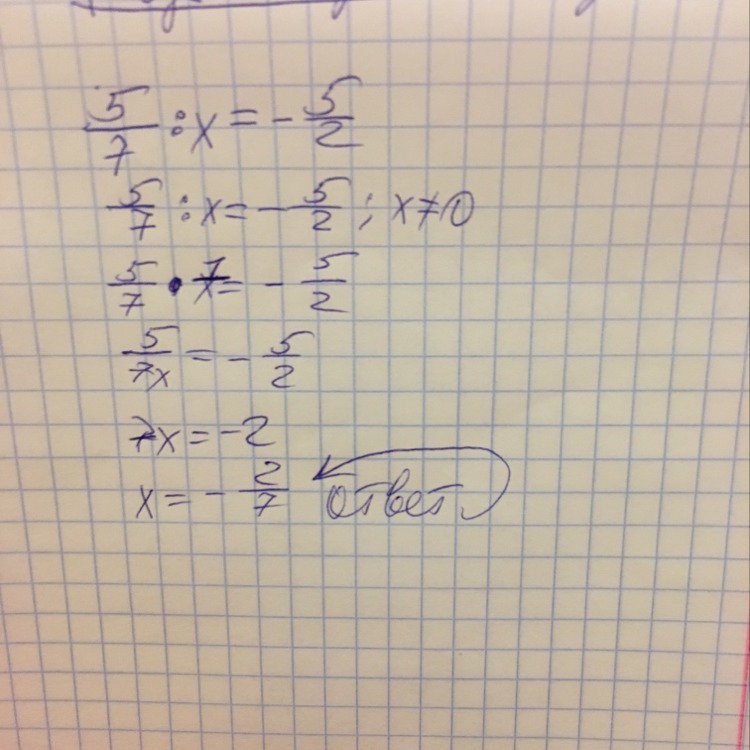 5/7 : x = - 5/2
5/7 : x = - 5/2 ; x ≠ 0
5/7 • 7/x = - 5/2
5/7x = - 5/2
7x = -2
x = - 2/7 ответ